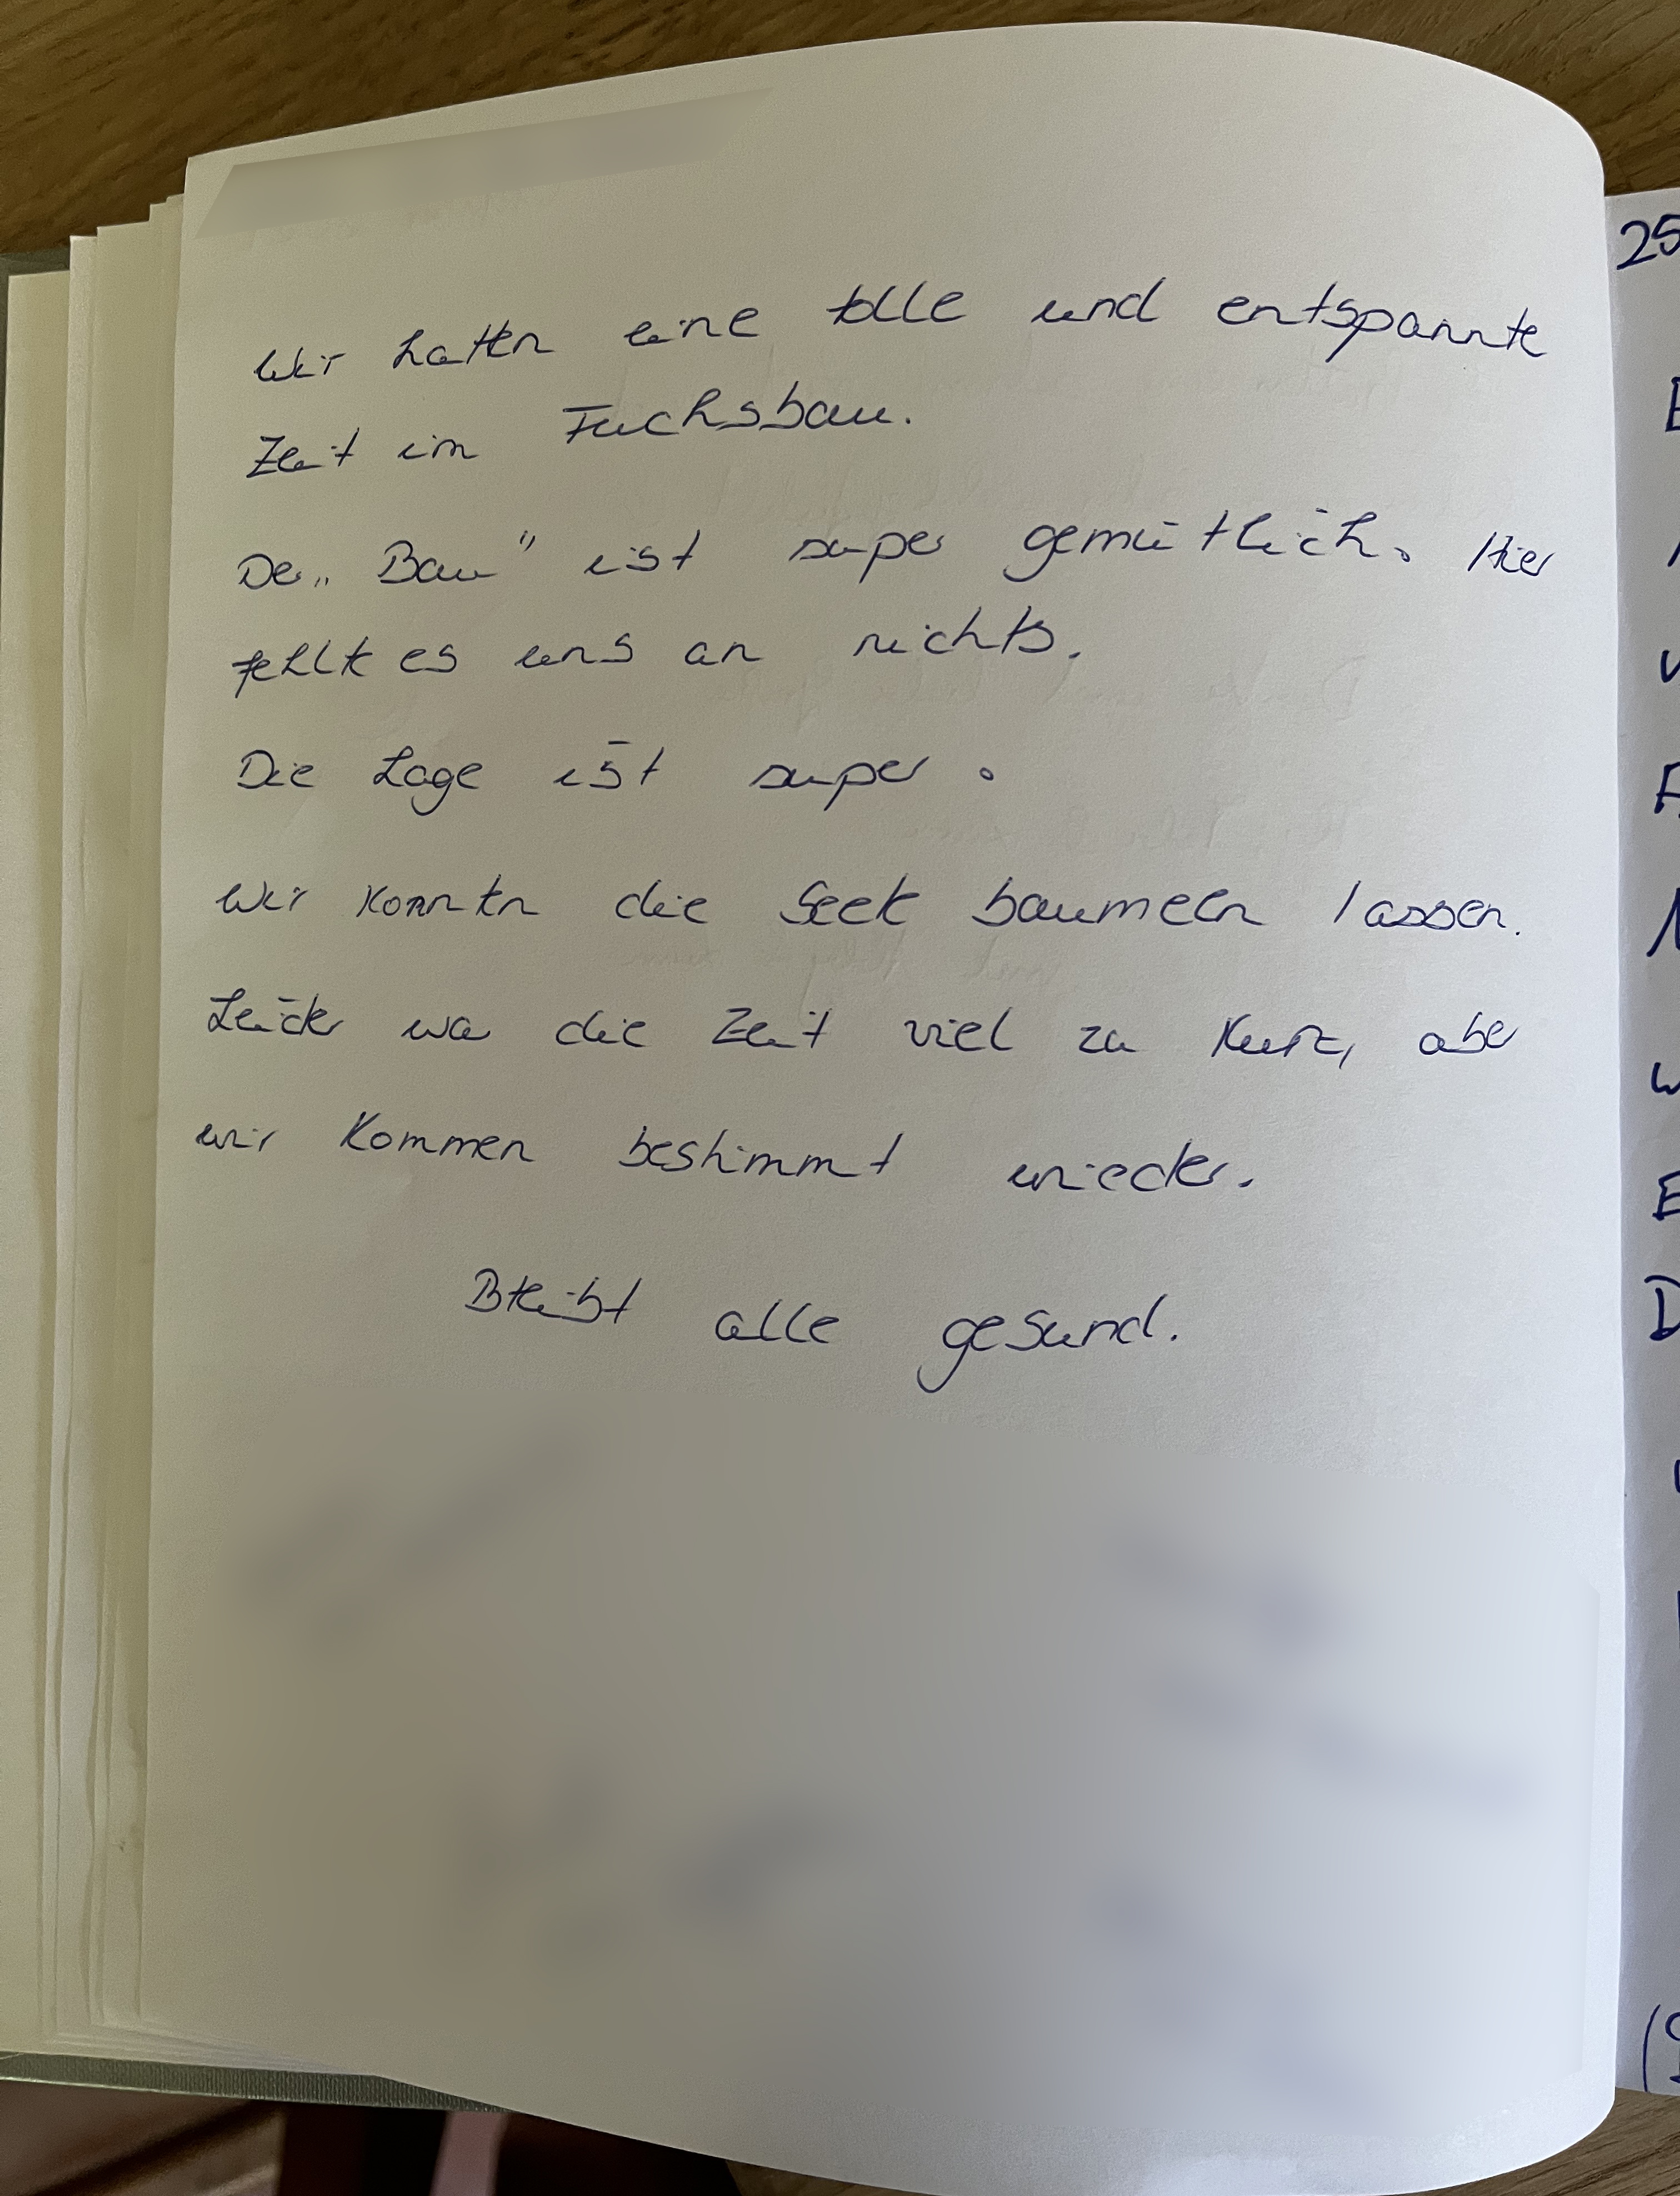 Wir hatten eine tolle und entspannte
Zeit im Fuchsbau.
Der „Bau" ist super gemütlich. Hier
fehlte es uns an nichts.
Die Lage ist super.
Wir konnten die Seele baumeln lassen.
Leider war die Zeit viel zu kurz, aber
wir kommen bestimmt wieder.
Bleibt alle gesund.
25